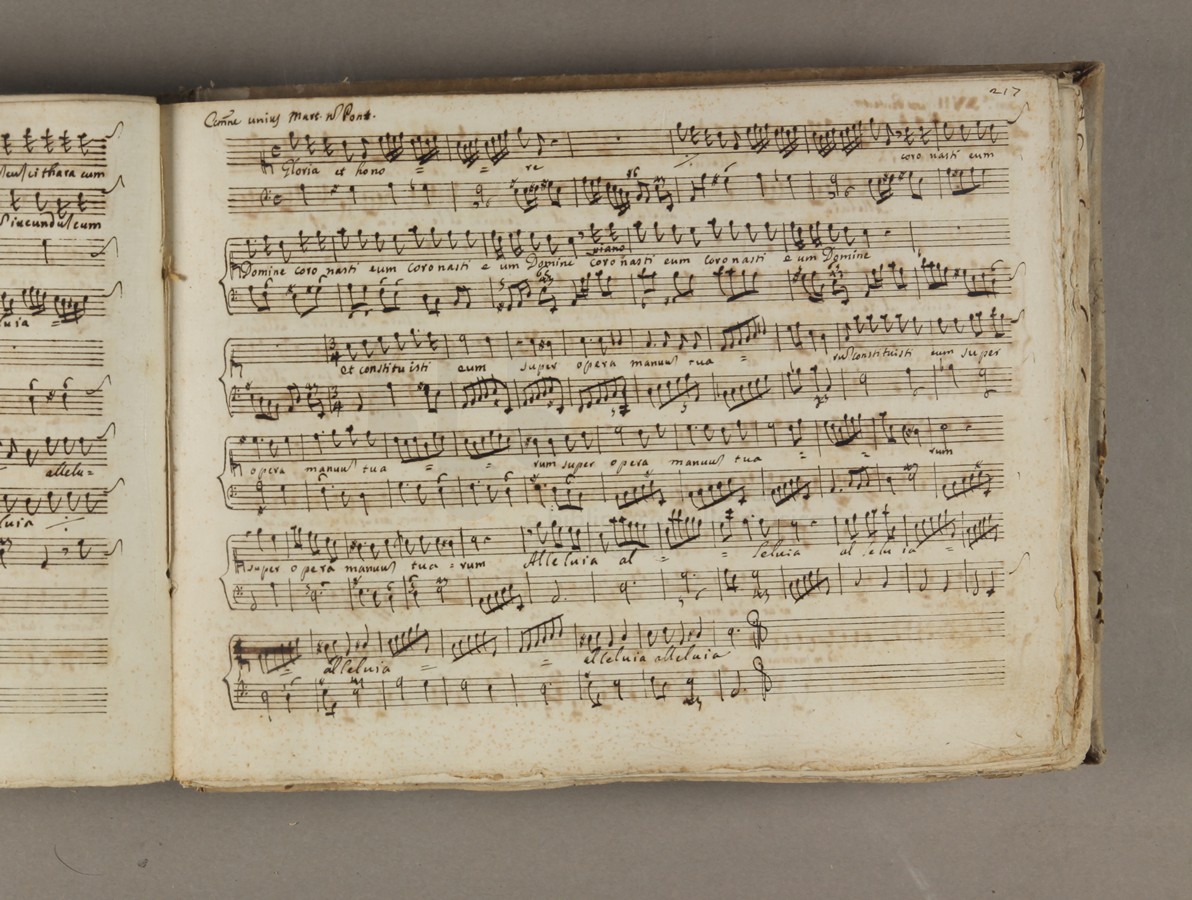 217
Com̃ne unius Mart. nõ Pont.
Gloria et hono = = re coronasti eum
Domine coronasti eum coronasti eum Domine coronasti eum coronasti eum Domine
piano
et constituisti eum super opera manuum tua = rum constituisti eum super
opera manuum tua = = rum super opera manuum tua = = rum
super opera manuum tua = rum Alleluia al = = leluia alleluia =
= alleluia = = alleluia alleluia
cithara cum
iucundum cum
luia =
allelu=
luia